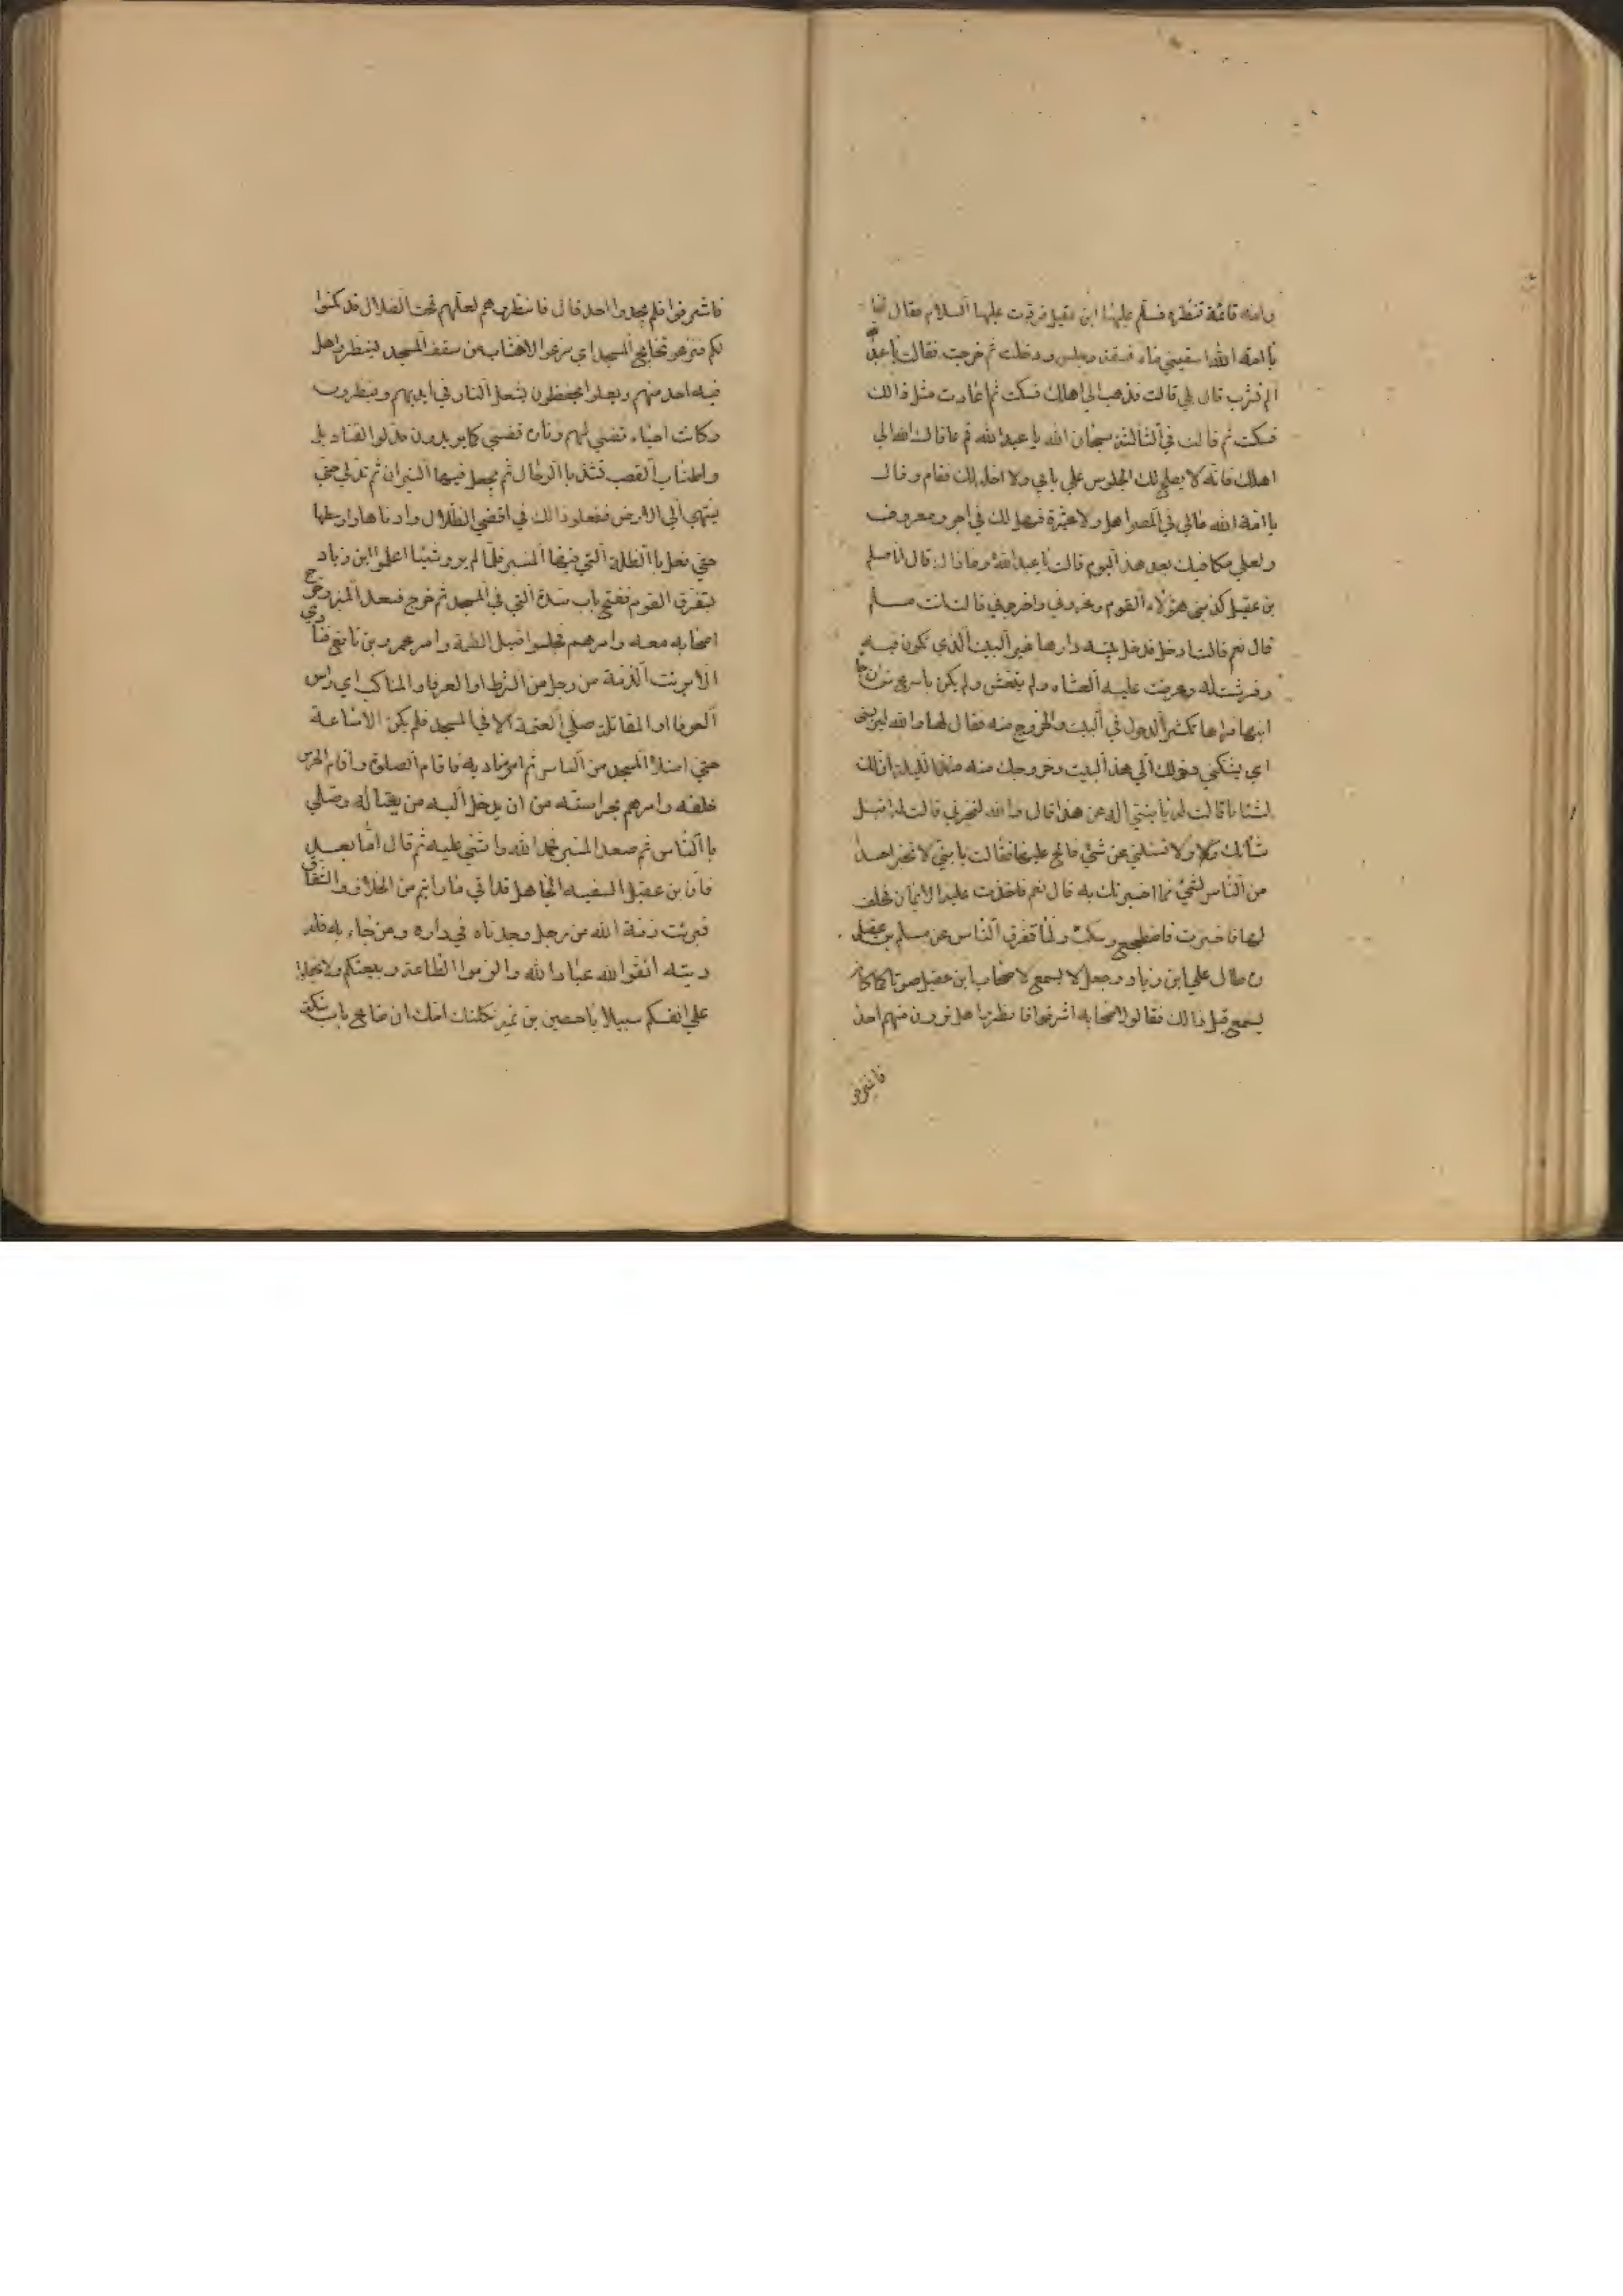 وامه قائمة تنظره فسلم عليها ابن عقيل فردت عليها السلام فقال لها
يا امة الله اسقيني ماء فسقته وجلس ودخلت ثم خرجت فقالت يا عبد الله
الم تشرب قال بلي قالت فاذهب الي اهلك فسكت ثم اعادت مثل ذالك
فسكت ثم قالت في الثالثة سبحان الله يا عبد الله قم عافاك الله الي
اهلك فانه لا يصلح لك الجلوس علي بابي ولا احله لك فقام وقال
يا امة الله مالي في المصر اهل ولا عشيرة فهل لك في اجر ومعروف
ولعلي مكافيك بعد هذا اليوم قالت يا عبد الله وما ذاك قال انا مسلم
بن عقيل كذبني هؤلاء القوم وغروني واخرجوني قالت انت مسلم
قال نعم قالت ادخل فدخل بيته دارها غير البيت الذي تكون فيه
وفرشت له وعرضت عليه العشاء ولم يتعش ولم يكن باسرع من ان جا
ابنها فراها تكثر الدخول في البيت والخروج منه فقال لها والله ليريبني
اي يشككني دخولك الي هذا البيت وخروجك منه منذ الليلة ان لك
لشانا قالت له يا بني اله عن هذا قال والله لتخبرني قالت له اقبل
شأنك ولا تسئلني عن شئ فالح عليها فقالت يا بني لا تخبر احدا
من الناس لشئ مما اخبرتك به قال نعم فاخذت عليه الايمان فحلف
لها فاخبرته فاضطجع وسكت ولما تفرق الناس عن مسلم بن عقيل
طال علي ابن زياد وجعل لا يسمع لاصحاب ابن عقيل صوتا كما كان
يسمع قبل ذالك فقال لاصحابه اشرفوا فانظروا هل ترون منهم احدا
فاشرفوا
فاشرفوا فلم يجدوا احد قال فانظروهم لعلهم تحت الظلال قد كمنوا
لكم فنزعو تخاتج المسجد اي نزعوا الاخشاب من سقف المسجد لينظروا هل
فيه احد منهم وجعلوا يخفظون بشعل النار في ايديهم وينظرون
وكانت احياء تضئ لهم وتارة تضئي كما يريدون فدلوا القناديل
واطناب القصب تشد بالرحال ثم يجعل فيها النيران ثم تدلي حتي
ينتهي الي الارض ففعلو ذالك في اقضي الظلال وادناها واوسطها
حتي فعل با الظلة التي فيها المنبر فلما لم يرو شيئا اعلموا ابن زياد
بتفرق القوم ففتح باب سدة التي في المسجد ثم خرج فصعد المنبر وخرج
اصحابه معه وامرهم فجلسوا قبيل العتمة وامر عمرو بن نافع فنادي
الا برئت الذمة من رجل من الشرط او العرفا والمناكب اي راس
العرفا او المقاتلة صلي العتمة الا في المسجد فلم يكن الا ساعة
حتي امتلأ المسجد من الناس ثم امر مناديه فاقام الصلوة واقام الحرس
خلفه وامرهم بحراسته من ان يدخل اليه من يغتاله وصلي
با الناس ثم صعد المنبر فحمد الله واثني عليه ثم قال اما بعد
فان ابن عقيل السفيه الجاهل قد اتي ما رايتم من الخلاف والشقاق
فبرئت ذمة الله من رجل وجدناه في داره ومن جاء به فله
ديته اتقوا الله عباد الله والزموا الطاعة وبيعتكم ولا تجعلوا
علي انفسكم سبيلا يا حصين بن نمير ثكلتك امك ان ضاع باب سكة